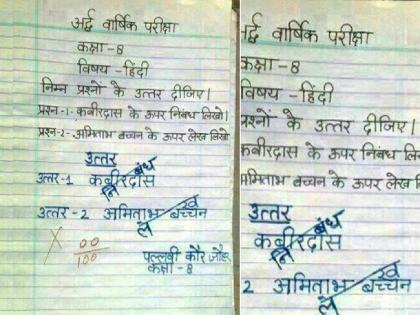 अर्द्ध वार्षिक परीक्षा
कक्षा - 8
विषय - हिंदी
निम्न प्रश्नों के उत्तर दीजिए।
प्रश्न-1- कबीरदास के ऊपर निबंध लिखो।
प्रश्न-2- अमिताभ बच्चन के ऊपर लेख लिखो
उत्तर
उत्तर-1 कबीरदास
निबंध
उत्तर-2 अमिताभ बच्चन
लेख
X 00
100
पल्लवी कौर
कक्षा - 8
र्द्ध वार्षिक परीक्षा
कक्षा - 8
विषय - हिंदी
प्रश्नों के उत्तर दीजिए।
कबीरदास के ऊपर निबंध लि
अमिताभ बच्चन के ऊपर लेख
उत्तर
कबीरदास
निबंध
2 अमिताभ बच्चन
लेख